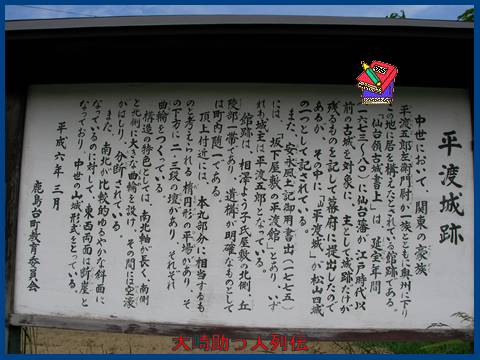 平渡城跡
中世において、関東の豪族
平渡五郎左衛門尉が一族とともに奥州に下り
この地に居を構えたとされている館跡である。
「仙台領古城書上」は、延宝年間
(一六七三〜八〇)に仙台藩が江戸時代以
前の古城を対象に、主として城跡だけが
残るものを記して幕府に提出したもので
あるが、その中に、「平渡城」が松山四城
の一つとして記されている。
また、安永風土記御用書出(一七七五)
には、「坂下屋敷の平渡館」とあり、いず
れも城主は平渡五郎となっている。
館跡は、相澤よう子氏屋敷の北側、丘
陵部一帯であり、遺構が明確なものとして
は町内随一である。
頂上付近には、本丸部分に相当するも
のと考えられる楕円形の平場があり、そ
の下方に二・三段の壇があり、それぞれ
曲輪をつくっている。
構造の特色としては、南北軸が長く、南側
と北側に大きな曲輪を設け、その間には空濠
がはしり、分断されている。
また、南北が比較的ゆるやかな斜面に
なっているのに対して、東西両面は断崖と
なっており、中世の山城形式をとっている。
平成六年三月
鹿島台町教育委員会
大崎助っ人列伝